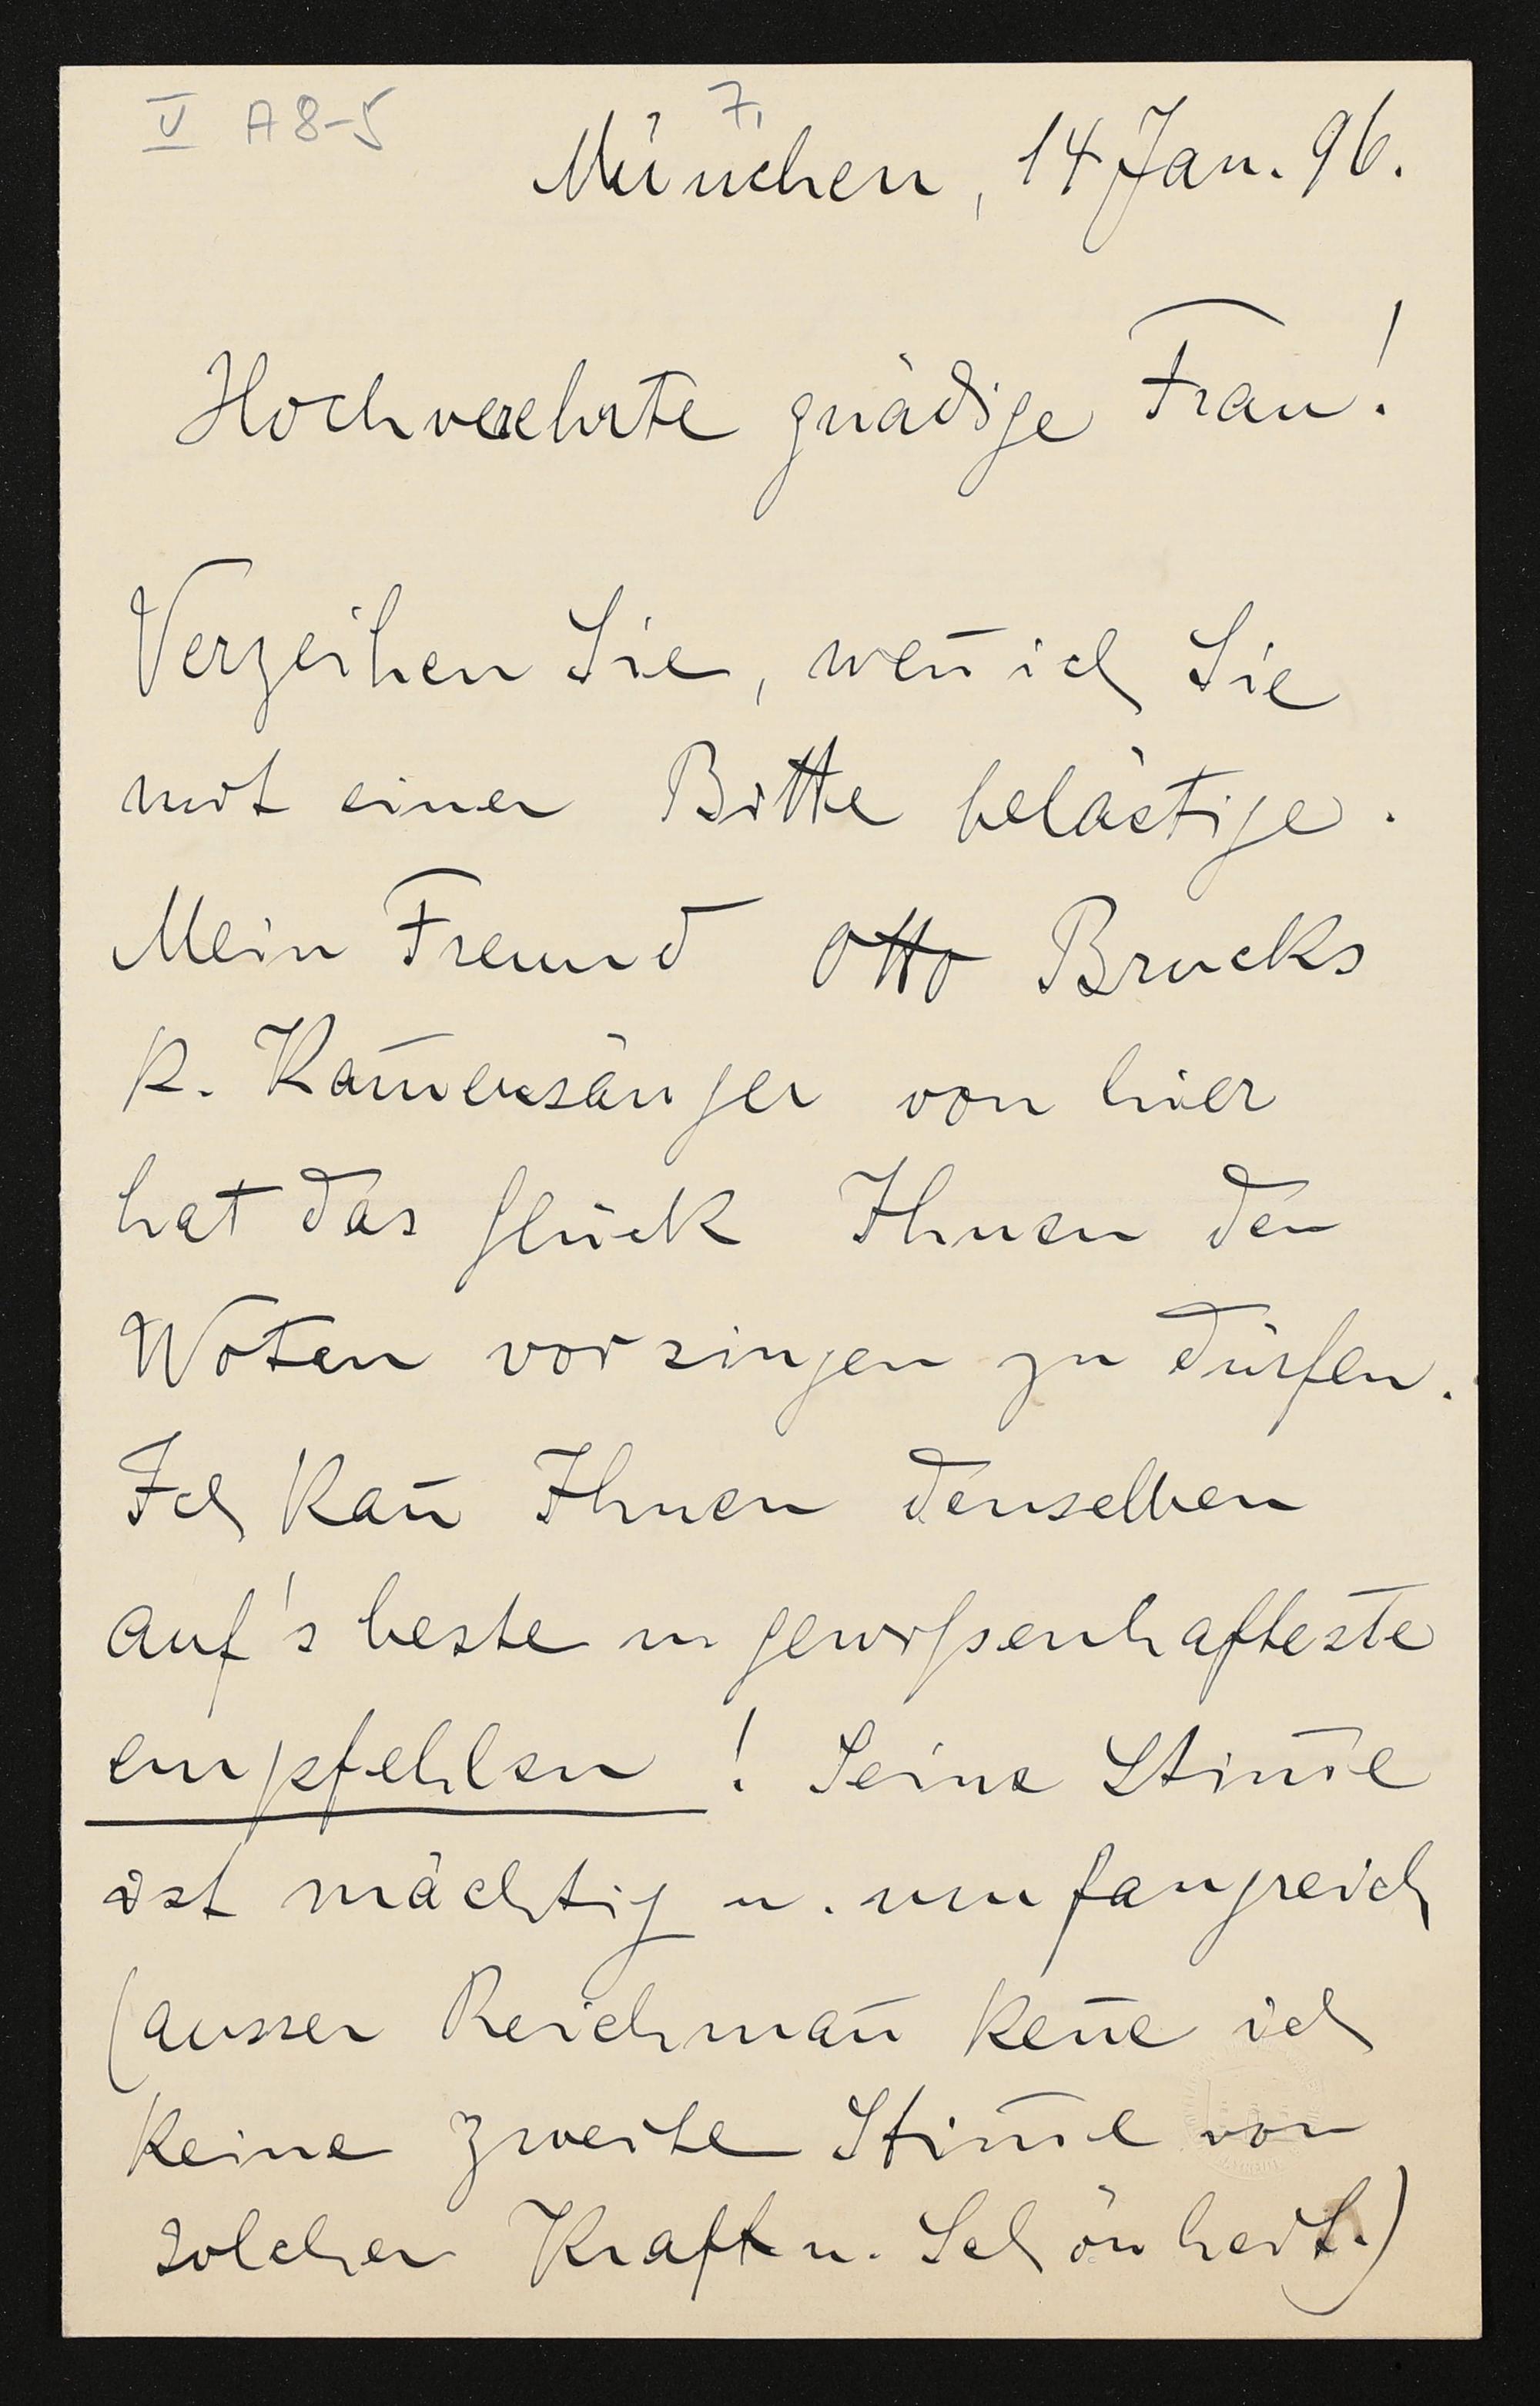 V A 8-5
7,
München, 14 Jan. 96.
Hochverehrte gnädige Frau!
Verzeihen Sie, wen̄ ich Sie
mit einer Bitte belästige.
Mein Freund Otto Brucks
K. Kam̄ersänger von hier
hat das Glück Ihnen den
Wotan vorsingen zu dürfen.
Ich kan̄ Ihnen denselben
auf's beste u gewißenhafteste
empfehlen! Seine Stim̄e
ist mächtig u. umfangreich
(ausser Reichman̄ ken̄e ich
keine zweite Stim̄e von
solcher Kraft u. Schönheit.)